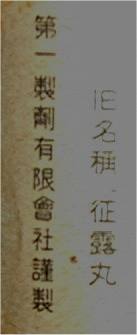 旧名稱 征露丸
第一製劑有限會社謹製